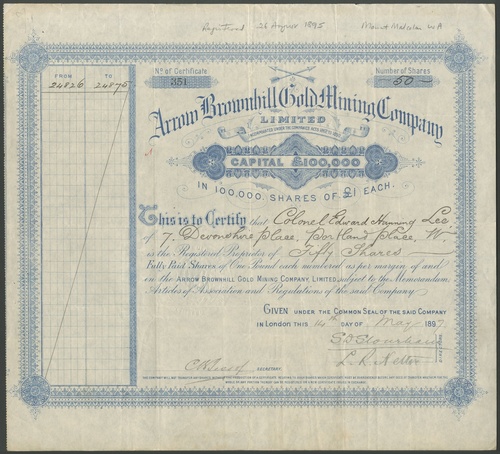 Registered 26 August 1895 Mount Malcolm WA
No. of Certificate
351
Number of Shares
50
FROM TO
24826 24875
Arrow Brownhill Gold Mining Company
LIMITED
CAPITAL £100,000
IN 100,000 SHARES OF £1 EACH.
This is to Certify that Colonel Edward Hanning Lee
of 7, Devonshire Place, Portland Place, W.
is the Registered Proprietor of Fifty Shares
Fully Paid Shares of One Pound each numbered as per margin of and
in the ARROW BROWNHILL GOLD MINING COMPANY, LIMITED, subject to the Memorandum
Articles of Association and Regulations of the said Company.
GIVEN UNDER THE COMMON SEAL OF THE SAID COMPANY
in London this 14th DAY OF May 1897
SECRETARY